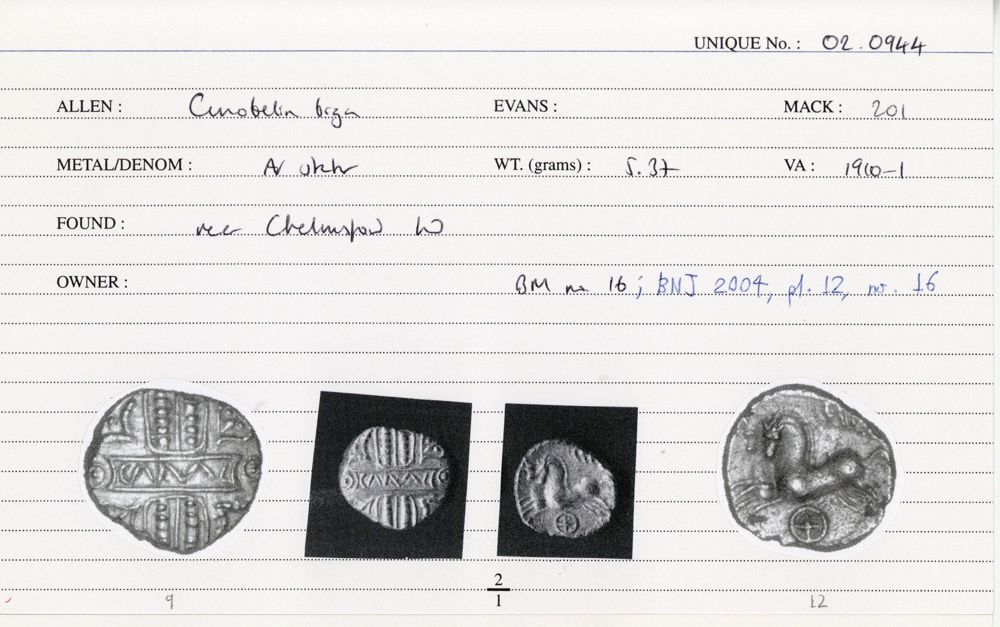 UNIQUE No. : 02.0944
ALLEN : Cunobelin biga EVANS : MACK : 201
METAL/DENOM : AV stater WT. (grams) : 5.37 VA : 1910-1
FOUND : near Chelmsford
OWNER : BM no 16; BNJ 2004, pl. 12, no. 16
CAMV
CAMV
2
9 1 12